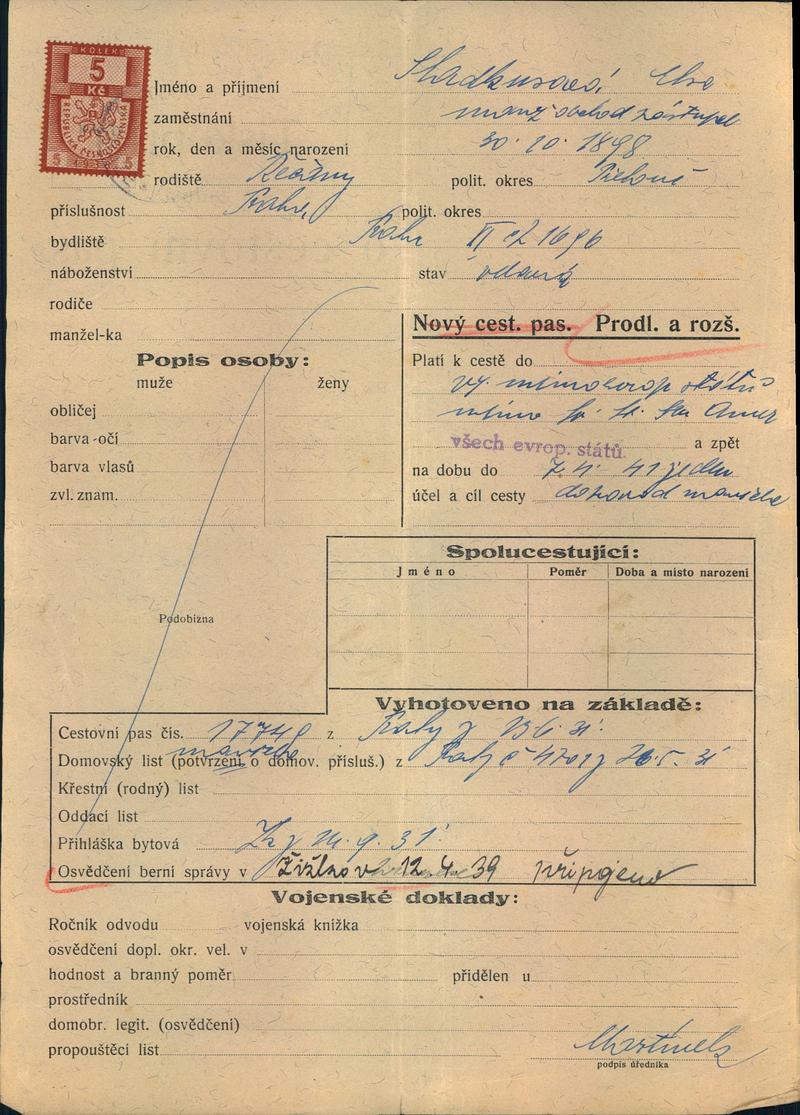 KOLEK
5
Kč
REPUBLIKA ČESKOSLOVENSKÁ
5 5
Jméno a příjmení
zaměstnání manž obchod zástupce
rok, den a měsíc narození 30. 10. 1898
rodiště Řečany polit. okres
příslušnost Praha, polit. okres
bydliště Praha II čp 1696
náboženství stav vdaná
rodiče
manžel-ka
Nový cest. pas. Prodl. a rozš.
Popis osoby:
muže ženy
obličej
barva očí
barva vlasů
zvl. znam.
Platí k cestě do
mimoevrop států
mimo Amer
všech evrop. států. a zpět
na dobu do
účel a cíl cesty doprovod manžela
Spolucestující:
Jméno Poměr Doba a místo narození
Podobizna
Vyhotoveno na základě:
Cestovní pas čís. 17749 z Prahy z 13.6.31.
manžela
Domovský list (potvrzení o domov. přísluš.) z Prahy č
Křestní (rodný) list
Oddací list
Přihláška bytová 9. 31.
Osvědčení berní správy v Žižkov 12.4.39 připojeno
Vojenské doklady:
Ročník odvodu vojenská knížka
osvědčení dopl. okr. vel. v
hodnost a branný poměr přidělen u
prostředník
domobr. legit. (osvědčení)
propouštěcí list
podpis úředníka